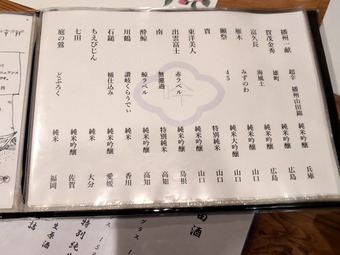 播州一献 超辛 播州山田錦 純米 兵庫
賀茂金秀 雄町 純米吟醸 広島
富久長 海風土 純米 広島
雁木 みずのわ 純米吟醸 山口
獺祭 45 純米大吟醸 山口
貴 特別純米 山口
東洋美人 純米吟醸 山口
出雲富士 赤ラベル 純米吟醸 島根
南 無濾過 特別純米 高知
酔鯨 鯨ラベル 純米吟醸 高知
川鶴 讃岐くらうでぃ 純米 香川
石鎚 槽仕込み 純米吟醸 愛媛
ちえびじん 純米 大分
七田 純米吟醸 佐賀
庭の鶯 どぶろく 純米 福岡
田酒
特別純
生原酒
グラス